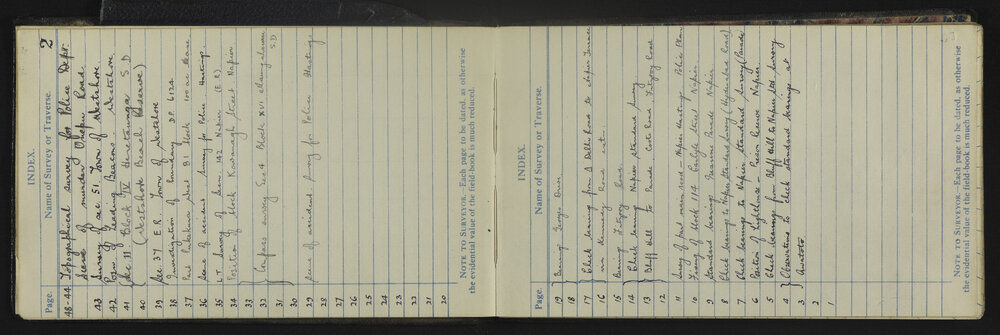 2
INDEX.
Page. Name of Survey or Traverse.
48-44 Topographical survey for Police Dept.
Scene of murder Ohapu Road.
43 Survey of Sec 51, Town of Westshore
42 Posn of Leading Beacons, Westshore.
41 Sec 11 Block IV Heretaunga S.D
40 (Westshore Beach Reserve)
39 Sec 37 E.R. Town of Westshore
38 Investigation of boundary DP 6124
37 Part Pakuhara Dist B1 Block 100 ac
36 Scene of accident Survey for Police Hastings.
35 L.T. Survey of Secn 142 Napier (E R)
34 Position of block Kavanagh Street Napier
33
32 Compass survey Sec 4 Block XVI
31 S.D
30
29 Scene of accident Survey for Police Hastings
28
27
26
25
24
23
22
21
20
NOTE TO SURVEYOR.—Each page to be dated, as otherwise
the evidential value of the field-book is much reduced.
INDEX.
Page. Name of Survey or Traverse.
19 Burning George Drive
18
17 Check bearing from Δ Delhi Road to Napier Terrace
16 on Kennedy Road ext.
15 Bearing Fitzroy Road.
14 Check bearing Napier Standard Survey
13 Bluff Hill to Parade, Coote Road, Fitzroy Road
12
11 Survey of part main road - Napier Hastings Police Plan
10 Fixing of block 114 Carlyle Street Napier
9 Standard bearings Marine Parade Napier
8 Check bearings to Napier Standard Survey (Hyderabad Road).
7 Check bearings to Napier Standard Survey (Parade
6 Position of Lighthouse & Prison Reserve Napier.
5 Check bearings from Bluff Hill to Napier Std Survey
4 Observations to check standard bearings at
3 Awatoto
2
1
NOTE TO SURVEYOR.—Each page to be dated, as otherwise
the evidential value of the field-book is much reduced.